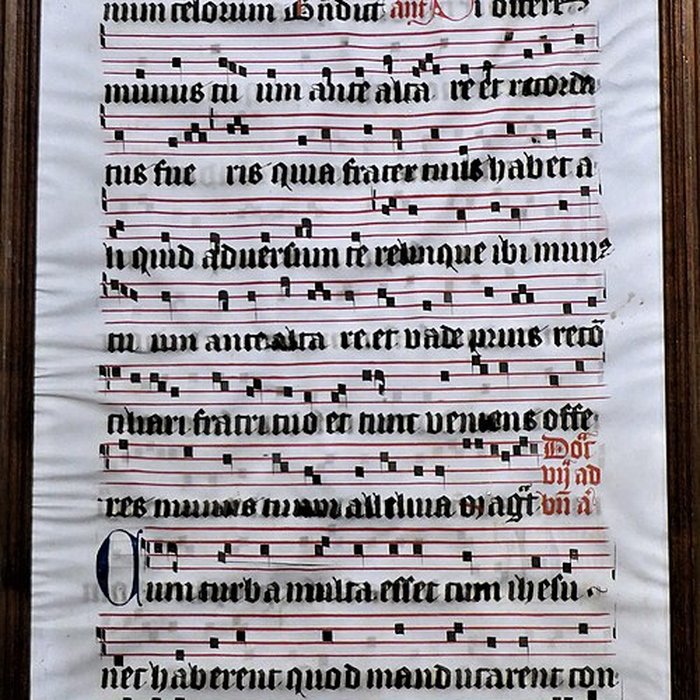 num celorum Bn̄dict̄ ant̄ Si offers
munus tu um ante alta re et recorda
tus fue ris quia frater tuus habet a
li quid adversum te relinque ibi mun9
tu um ante alta re et vade prius recō
ciliari fratri tuo et tunc veniens offe
Dōī
vij ad
res munus tuum alleluia Magt̄ bn̄ a
Cum turba multa esset cum ihesu
nec haberent quod manducarent con